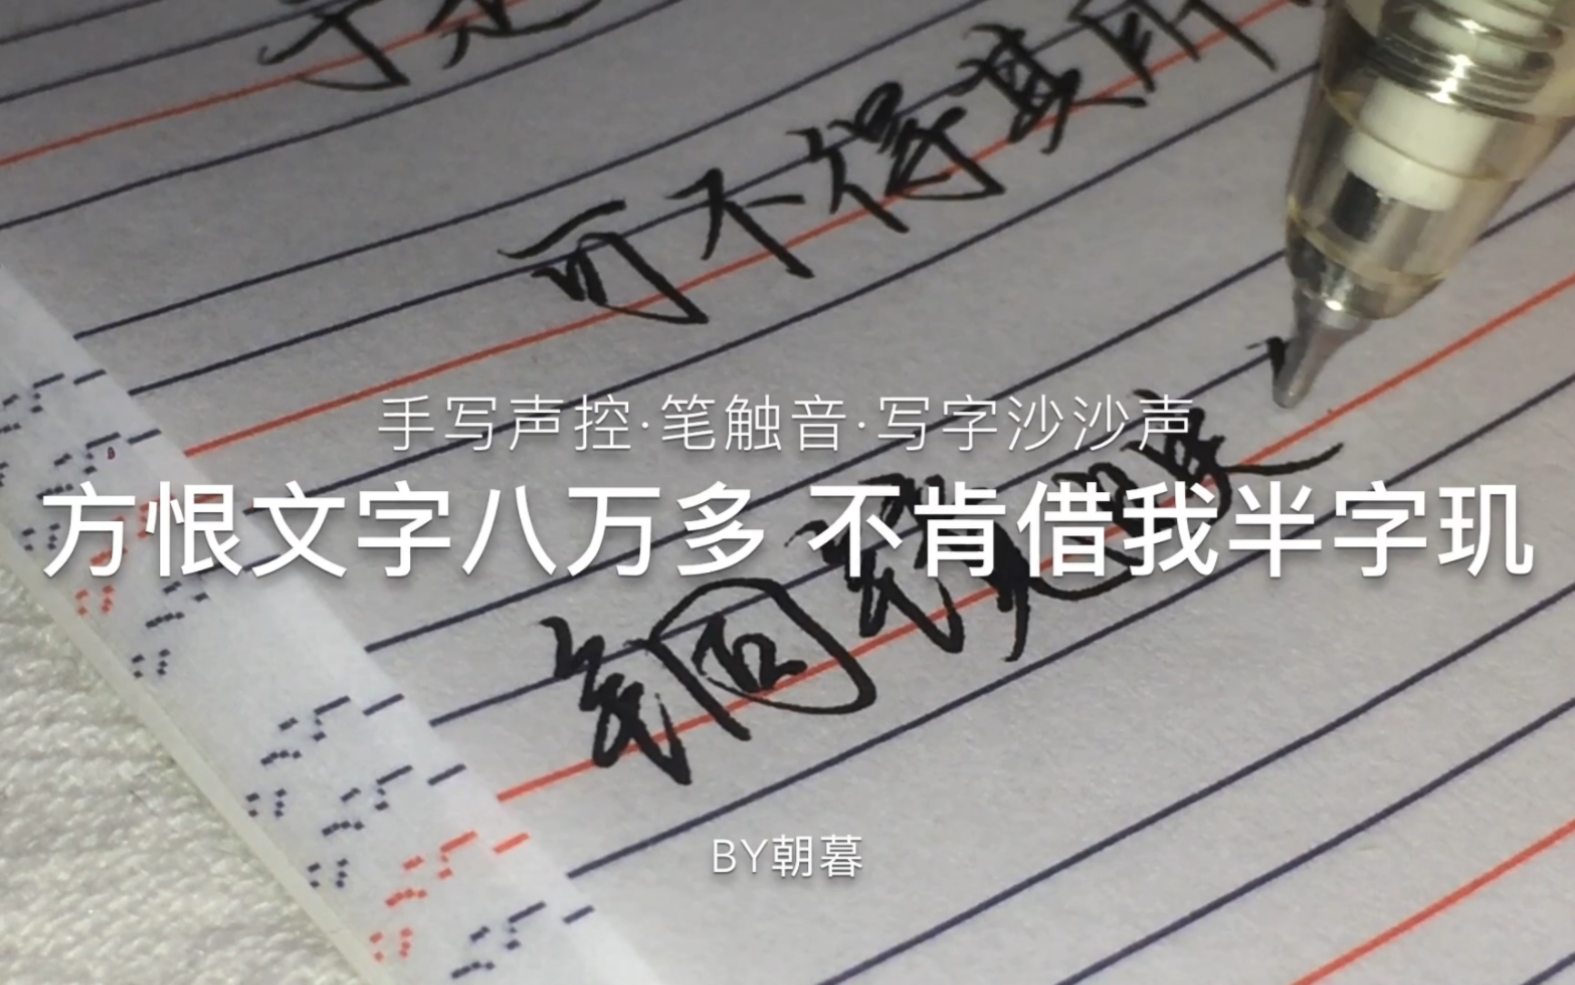 于是
可不得其所
手写声控·笔触音·写字沙沙声
方恨文字八万多 不肯借我半字玑
BY朝暮